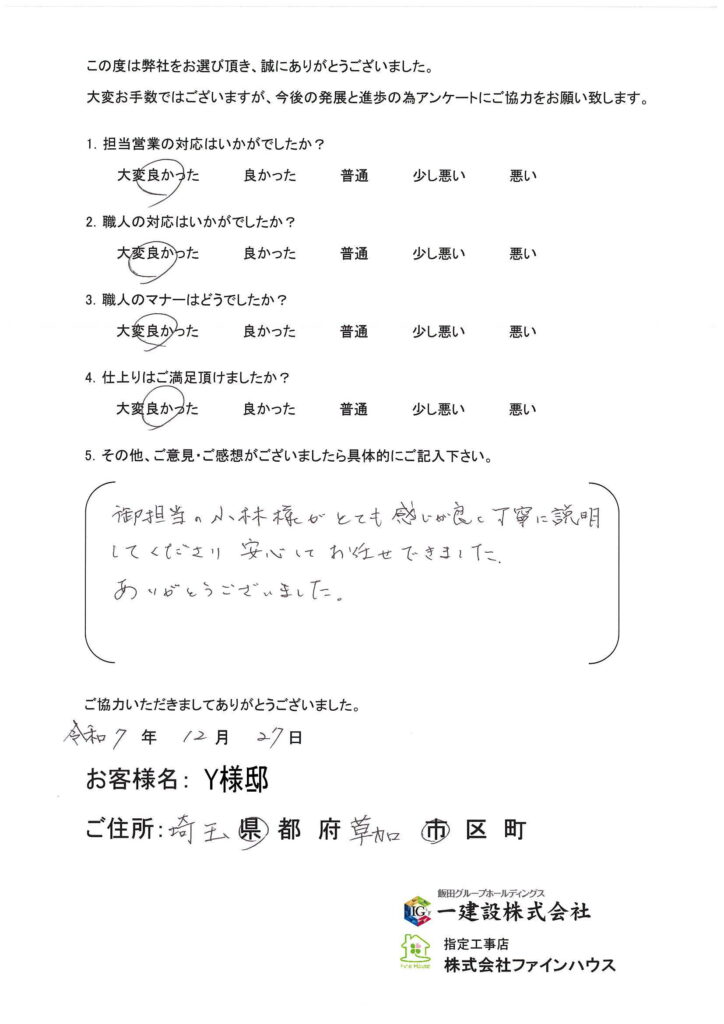 この度は弊社をお選び頂き、誠にありがとうございました。
大変お手数ではございますが、今後の発展と進歩の為アンケートにご協力をお願い致します。
1. 担当営業の対応はいかがでしたか？
大変良かった 良かった 普通 少し悪い 悪い
2. 職人の対応はいかがでしたか？
大変良かった 良かった 普通 少し悪い 悪い
3. 職人のマナーはどうでしたか？
大変良かった 良かった 普通 少し悪い 悪い
4. 仕上りはご満足頂けましたか？
大変良かった 良かった 普通 少し悪い 悪い
5. その他、ご意見・ご感想がございましたら具体的にご記入下さい。
御担当の小林様がとても感じが良く丁寧に説明
してくださり 安心してお任せできました.
ありがとうございました。
ご協力いただきましてありがとうございました。
令和7 年 12 月 27 日
お客様名： Y様邸
ご住所：埼玉 県 都 府 草加 市 区 町
飯田グループホールディングス
IG 一建設株式会社
指定工事店
Fine House 株式会社ファインハウス